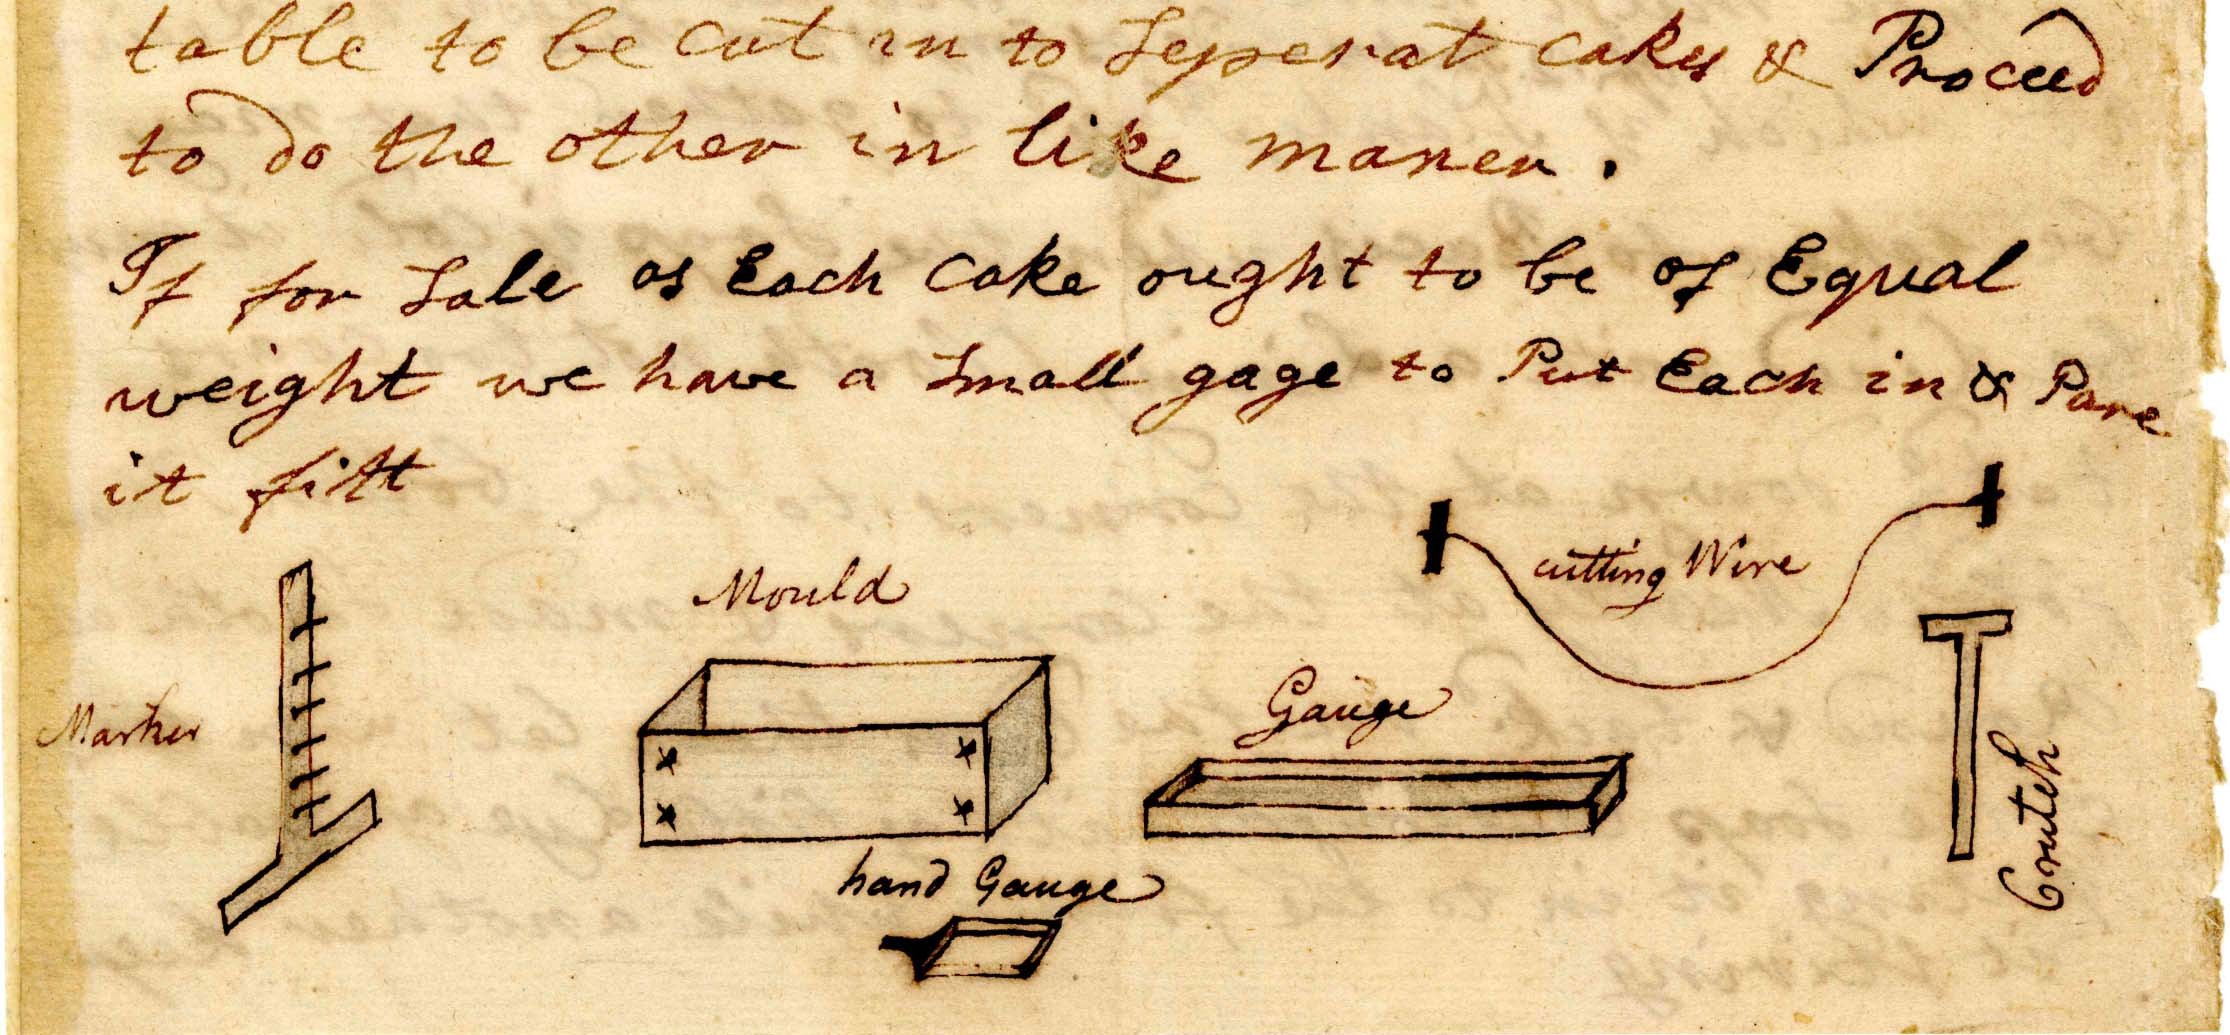 table to be cut in to Seperat cakes & Proceed
to do the other in like maner .
If for Sale as Each Cake ought to be of Equal
weight we have a Small gage to Put Each in & Pare
it fitt
cutting Wire
Mould
Marker
Gauge
Crutch
hand Gauge